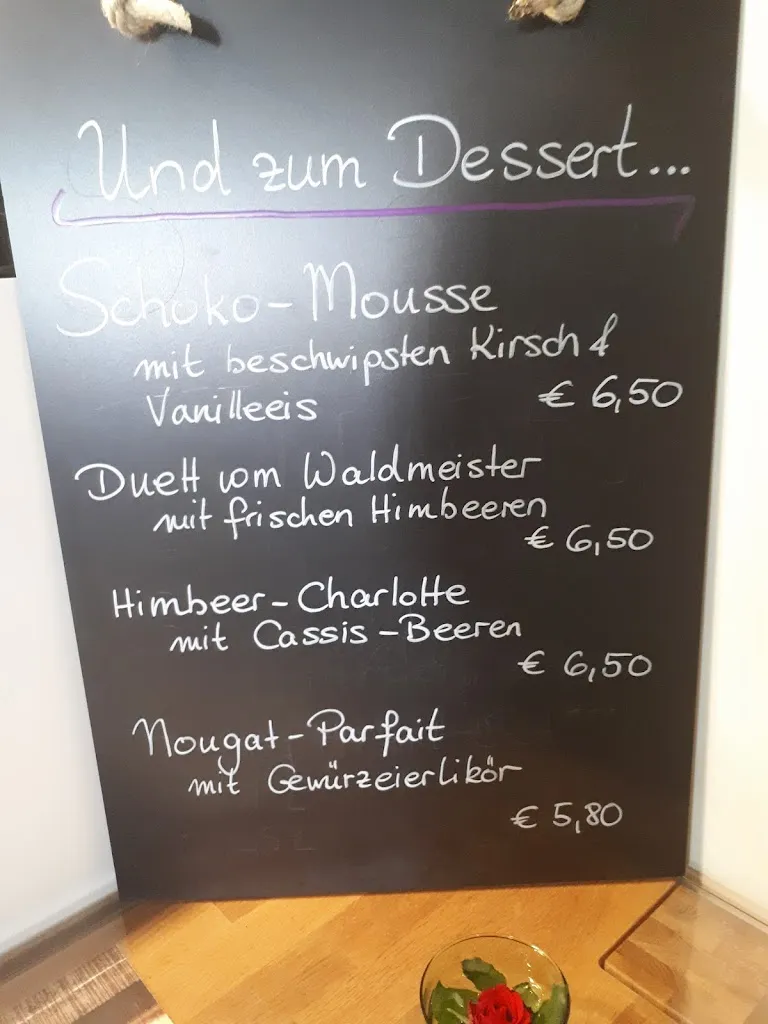 Und zum Dessert...
Schoko-Mousse
mit beschwipsten Kirsch &
Vanilleeis € 6,50
Duett vom Waldmeister
mit frischen Himbeeren
€ 6,50
Himbeer-Charlotte
mit Cassis-Beeren
€ 6,50
Nougat-Parfait
mit Gewürzeierlikör
€ 5,80